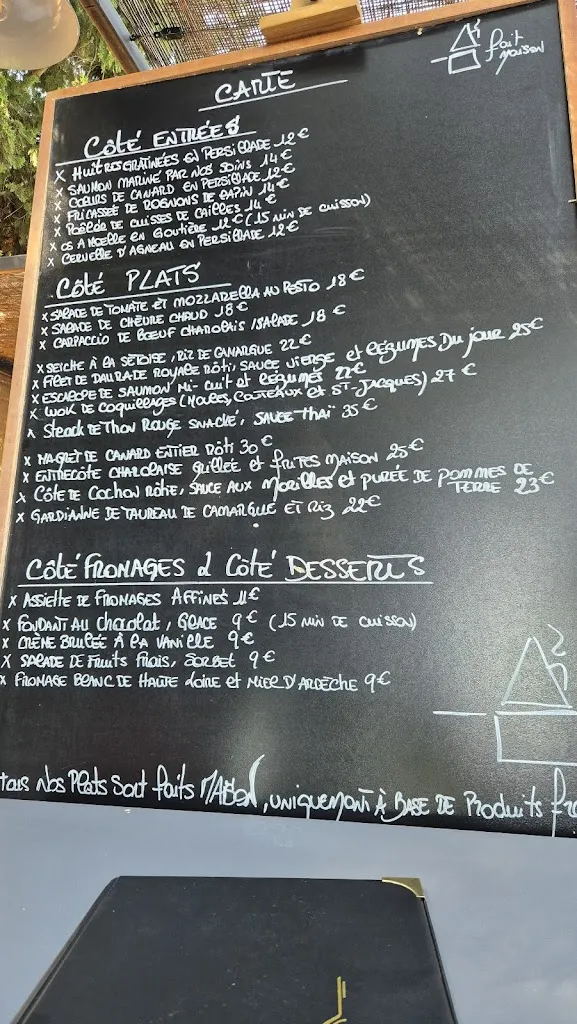 fait
maison
CARTE
Côté ENTRÉES
x HUITRES GRATINÉES EN PERSILLADE 12€
x SAUMON MARINÉ PAR NOS SOINS 14€
x CŒURS DE CANARD EN PERSILLADE 12€
x FRICASSÉE DE ROGNONS DE LAPIN 14€
x POÊLÉE DE CUISSES DE CAILLES 14€
x OS A MOELLE EN GOUTIÈRE 12€ (15 MIN DE CUISSON)
x CERVELLE D'AGNEAU EN PERSILLADE 12€
Côté PLATS
x SALADE DE TOMATE ET MOZZARELLA AU PESTO 18€
x SALADE DE CHÈVRE CHAUD 18€
x CARPACCIO DE BŒUF CHAROLAIS / SALADE 18€
x SEICHE À LA SÉTOISE, RIZ DE CAMARGUE 22€
x FILET DE DAURADE ROYALE RÔTI, SAUCE VIERGE et LÉGUMES DU JOUR 25€
x ESCALOPE DE SAUMON MI-CUIT et LÉGUMES 22€
x WOK DE COQUILLAGES (MOULES, COUTEAUX ET ST-JACQUES) 27€
x STEACK DE THON ROUGE SNACKÉ, SAUCE THAÏ 35€
x MAGRET DE CANARD ENTIER RÔTI 30€
x ENTRECÔTE CHAROLAISE grillée et FRITES MAISON 25€
x CÔTE DE COCHON RÔTIE, SAUCE AUX MORILLES et PURÉE DE POMMES DE
TERRE 23€
x GARDIANNE DE TAUREAU DE CAMARGUE ET RIZ 22€
CÔTÉ FROMAGES & CÔTÉ DESSERTS
x ASSIETTE DE FROMAGES AFFINÉS 11€
x FONDANT AU CHOCOLAT, GLACE 9€ (15 MIN DE CUISSON)
x CRÈME BRULÉE À LA VANILLE 9€
x SALADE DE FRUITS FRAIS, SORBET 9€
x FROMAGE BLANC DE HAUTE LOIRE et MIEL D'ARDÈCHE 9€
tous Nos Plats Sont faits MAISON, UNIQUEMENT À BASE DE PRODUITS fr